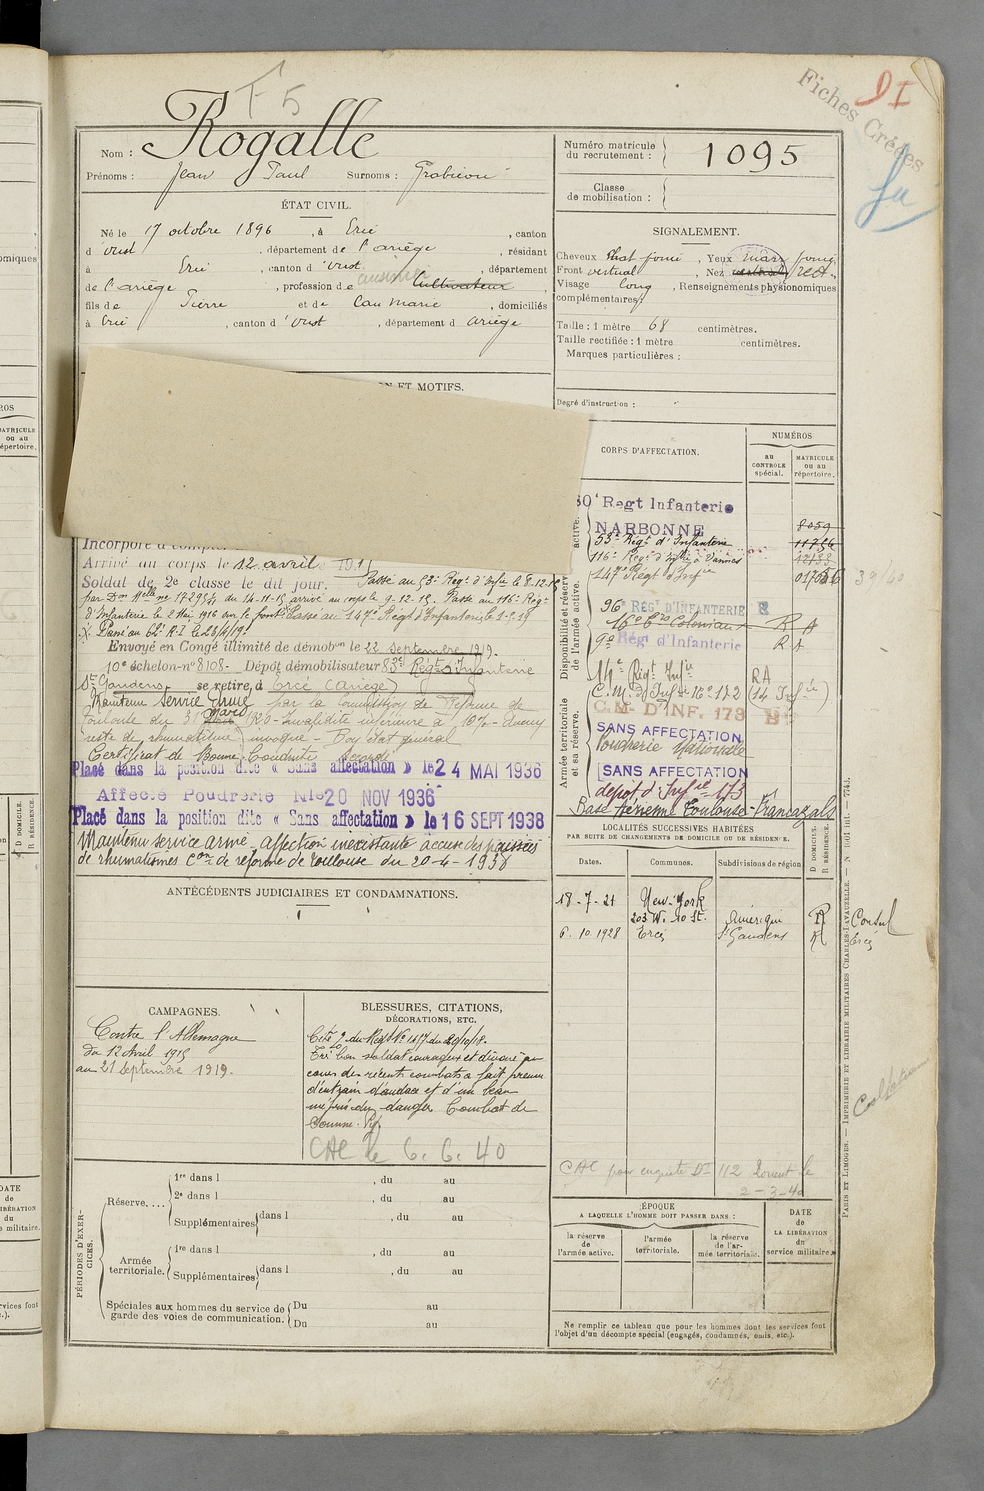 F5
Fiches Créées
Nom : Rogalle
Prénoms : Jean Paul Surnoms :
ÉTAT CIVIL.
Né le 17 octobre 1896, à Ercé, canton
d'Oust, département de l'Ariège, résidant
à Ercé, canton d'Oust, département
de l'Ariège, profession de Cultivateur,
fils de Pierre et de Cau Marie, domiciliés
à Ercé, canton d'Oust, département d Ariège
Numéro matricule
du recrutement : 1095
Classe
de mobilisation :
SIGNALEMENT.
Cheveux Chat foncé, Yeux marr
Front vertical, Nez rect.
Visage long, Renseignements physionomiques
complémentaires:
Taille : 1 mètre 68 centimètres.
Taille rectifiée : 1 mètre centimètres.
Marques particulières :
Degré d'instruction :
ET MOTIFS.
Incorporé à compter
Arrivé au corps le 12 avril 191
Soldat de 2e classe le dit jour. Passé au 53e Régt d'Infie le 8-12-15
du 14-11-15 arrivé au corps le 9-12-15. Passé au 116e Régt
d'Infanterie le 2 Mai 1916 Passé au 147e Régt d'Infanterie le 1-5-19
Passé au
Envoyé en Congé illimité de démobon le 22 septembre 1919.
10e échelon-no 8108- Dépôt démobilisateur 83e Régt d'Infanterie
St Gaudens se retire, à Ercé (Ariège)
Maintenu Service Armé par la Commission de Réforme de
Toulouse du 31 Mars 1920 - Invalidité inférieure à 10% -
reste de rhumatisme invoqué - Bon état général
Certificat de Bonne Conduite Accordé
Placé dans la position dite « Sans affectation » le 24 MAI 1936
Affecté Poudrerie Nle 20 NOV 1936
Placé dans la position dite « Sans affectation » le 16 SEPT 1938
Maintenu service armé, affection inexistante accuse des poussées
de rhumatismes Con de réforme de Toulouse du 20-4-1938
CORPS D'AFFECTATION.
NUMÉROS
au
CONTROLE
spécial.
MATRICULE
ou au
répertoire.
Disponibilité et réserve
de l'armée active.
active.
Armée territoriale
et sa réserve.
80e Regt Infanterie
NARBONNE 8059
53e Régt d'Infanterie
116e Régt d'Infie à Vannes
147e Régt d'Infie
39/40
96e RÉGt D'INFANTERIE
16e Bon Colonial RA
9e Régt d'Infanterie RA
14e Régt Infie RA
C.M. d'Inf de 16e 172 (14 Infie)
C.M- D'INF. 173
SANS AFFECTATION
Poudrerie Nationale
SANS AFFECTATION
dépôt d'Infie 173
Base Aérienne Toulouse-Francazals
ANTÉCÉDENTS JUDICIAIRES ET CONDAMNATIONS.
LOCALITÉS SUCCESSIVES HABITÉES
PAR SUITE DE CHANGEMENTS DE DOMICILE OU DE RÉSIDENCE.
Dates. Communes. Subdivisions de région
D DOMICILE.
R RÉSIDENCE.
18-7-21 New-York Amérique R Consul
203 W. 20 St.
6.10.1928 Ercé St Gaudens R Ercé
CAMPAGNES.
Contre l'Allemagne
du 12 Avril 1915
au 21 septembre 1919.
BLESSURES, CITATIONS,
DÉCORATIONS, ETC.
Cité O. du Régt No 1417 du 20/10/18.
Très bon soldat courageux et dévoué au
cours des récents combats a fait preuve
d'entrain d'audace et d'un beau
mépris du danger Combat de
CAC le 6. 6. 40
CAC pour enquête DI 112
2-3-40
PÉRIODES D'EXERCICES.
Réserve.... 1re dans l , du au
2e dans l , du au
Supplémentaires dans l , du au
Armée
territoriale. 1re dans l , du au
Supplémentaires dans l , du au
Spéciales aux hommes du service de
garde des voies de communication. Du au
Du au
ÉPOQUE
A LAQUELLE L'HOMME DOIT PASSER DANS :
la réserve
de
l'armée active.
l'armée
territoriale.
la réserve
de l'armée territoriale.
DATE
de
LA LIBÉRATION
du
service militaire.
Ne remplir ce tableau que pour les hommes dont les services font
l'objet d'un décompte spécial (engagés, condamnés, omis, etc.).
PARIS ET LIMOGES. — IMPRIMERIE ET LIBRAIRIE MILITAIRES CHARLES-LAVAUZELLE.